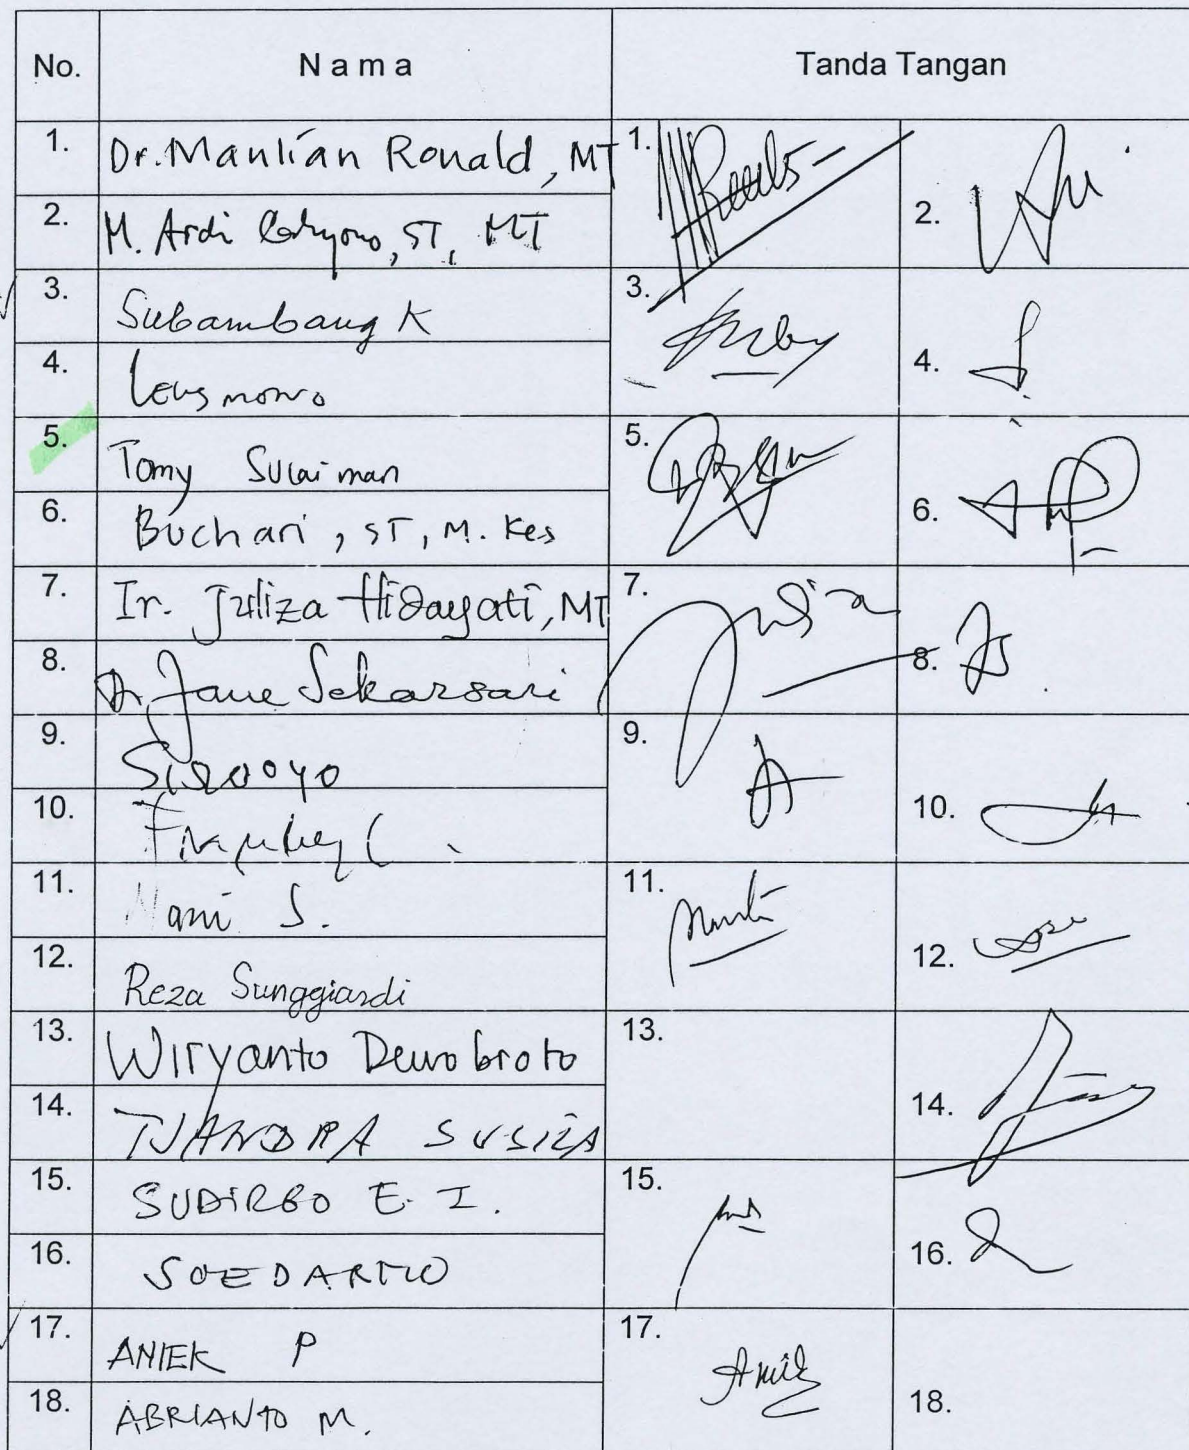 No. Nama Tanda Tangan
1. Dr. Manlian Ronald, MT 1.
2. M. Ardi Cahyono, ST, MT 2.
3. Subambang K 3.
4. 4.
5. Tomy Sulaiman 5.
6. Buchari, ST, M. Kes 6.
7. Ir. Juliza Hidayati, MT 7.
8. Dr. Jane Sekarsari 8.
9. 9.
10. 10.
11. Nani S. 11.
12. Reza Sunggiardi 12.
13. Wiryanto Dewobroto 13.
14. TJANDRA SUSILA 14.
15. SUDIRGO E. I. 15.
16. SOEDARMO 16.
17. ANIEK P 17.
18. ABRIANTO M. 18.